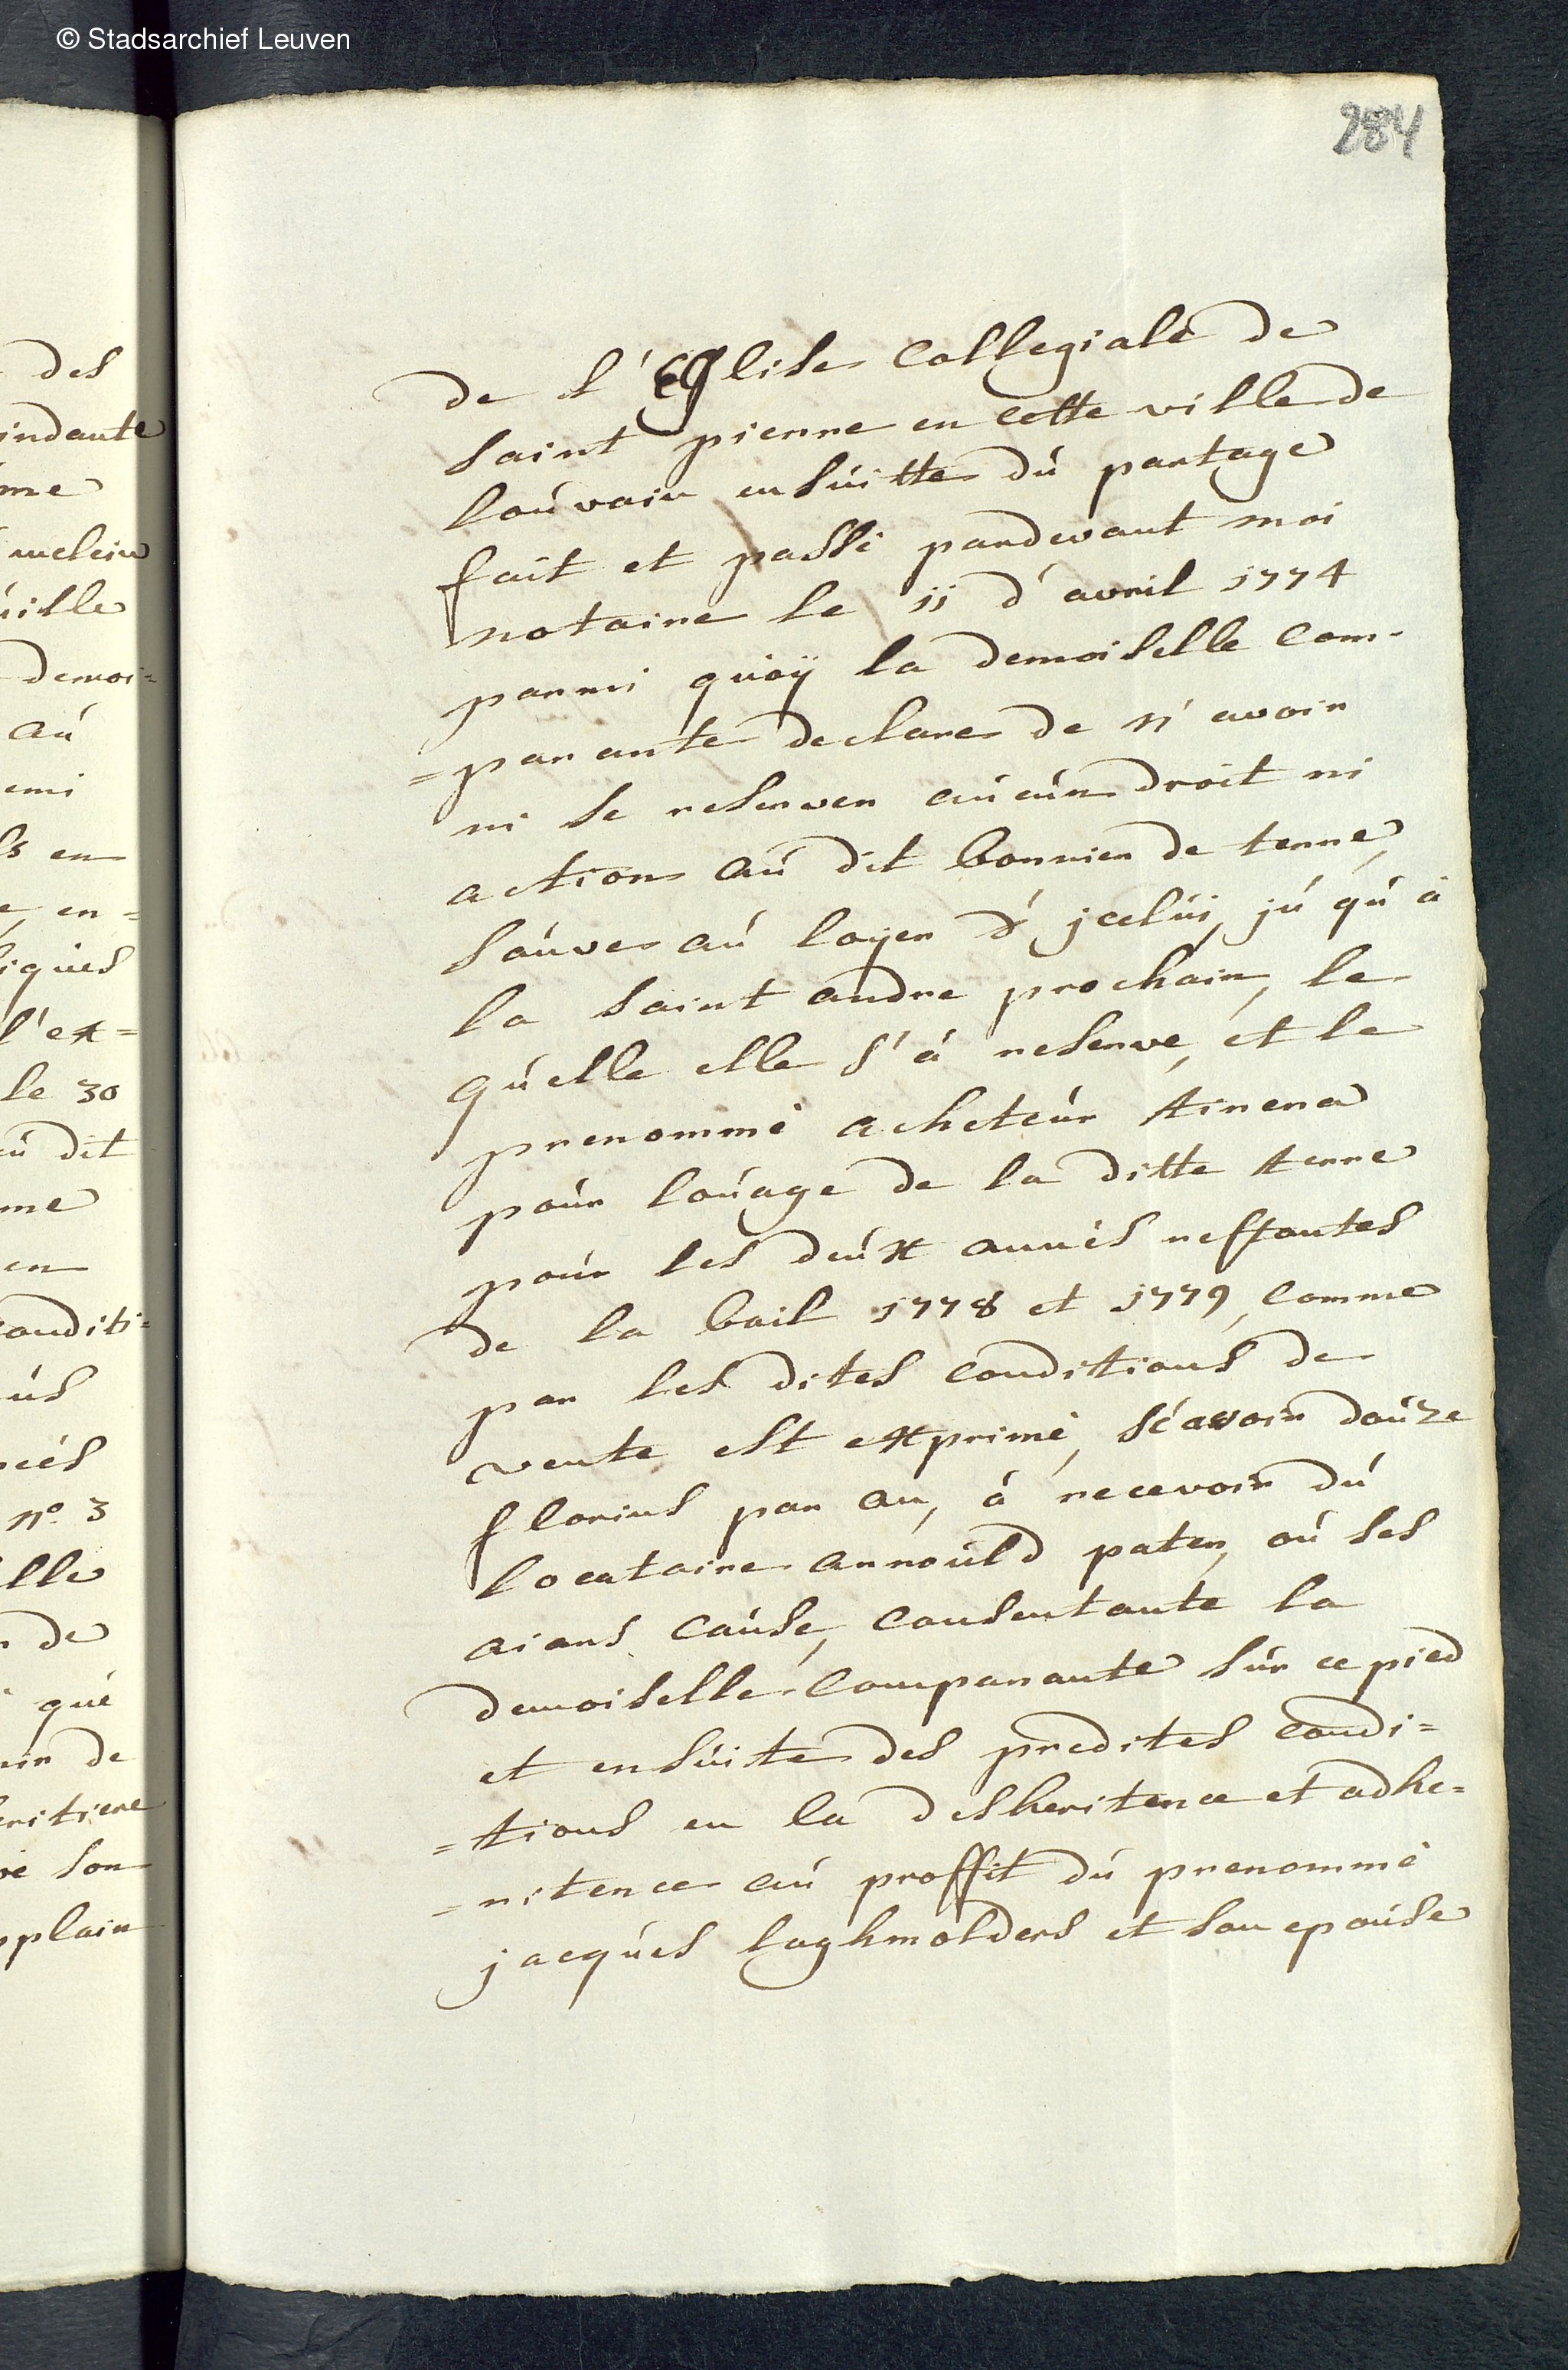 © Stadsarchief Leuven
284
des
indante
me
uclein
uille
demoi=
au
emi
s en
e en=
iques
l'ex=
le 30
u dit
me
en
conditi=
us
nces
n.o 3
lle
de
que
nir de
eritiere
ve son
pplain
de l'Eglise Collegiale de
saint pierre en cette ville de
louvain ensuitte du partage
fait et passé pardevant moi
notaire le 11 d'avril 1774
parmi quoÿ la demoiselle com-
=parante declare de n'avoir
ni se reserver aucun droit ni
action au dit bonnier de terre,
sauve au loyer d'jcelui, ju qu'a
la saint andre prochain, le
quelle elle s'a reservé, et le
prenommé acheteur tirera
pour louage de la ditte terre
pour les deux annés restantes
de la bail 1778 et 1779, comme
par les dites conditions de
vente est exprimé, sçavoir douze
florins par an, à recevoir du
locataire arnould pater, ou ses
aians cause, consentante la
demoiselle comparante sur ce pied
et ensuite des predites condi=
=tions en la desheritence et adhe=
=ritence au proffit du prenommé
jacques laghmolders et son epouse